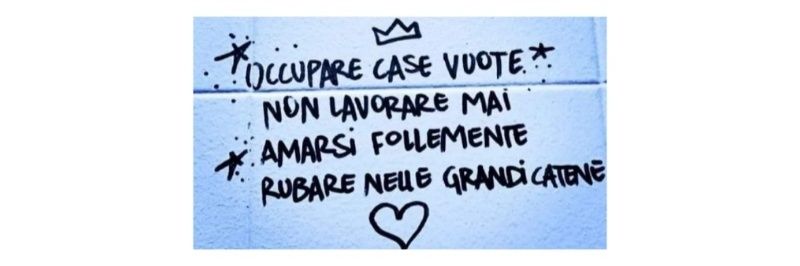 OCCUPARE CASE VUOTE
NON LAVORARE MAI
AMARSi FOLLEMENTE
RUBARE NELLE GRANDi CATENE